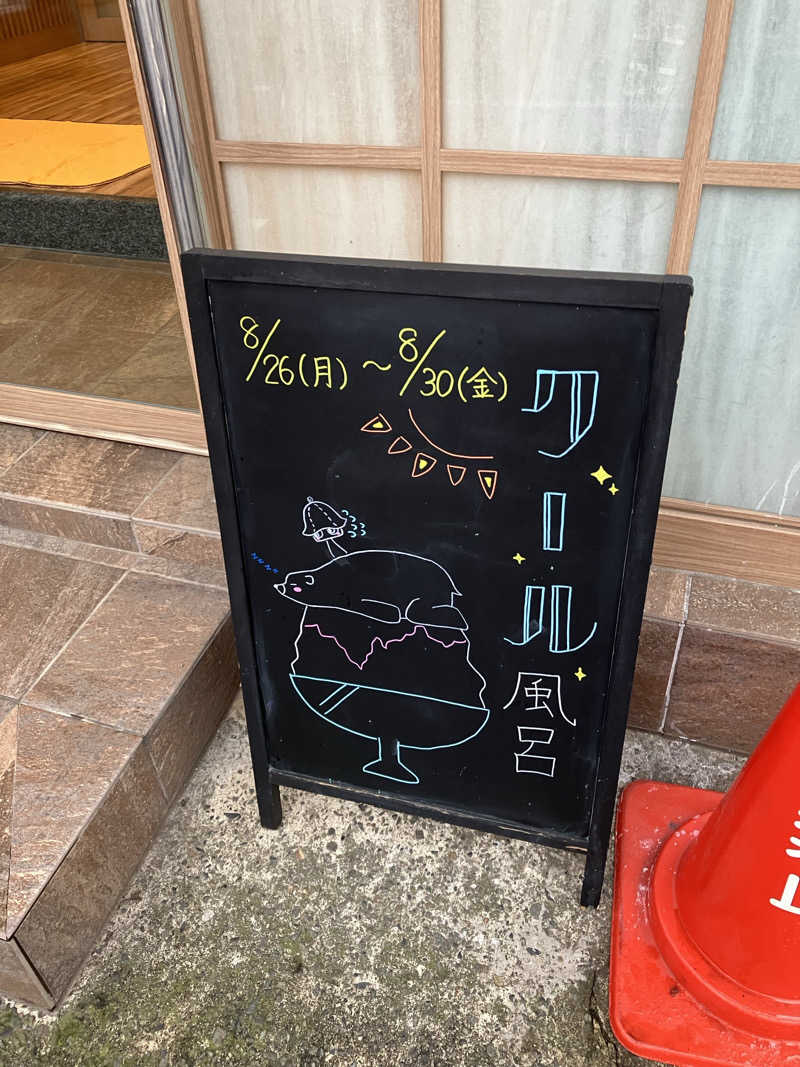 8/26(月)〜8/30(金)
クール風呂
zzzz
止